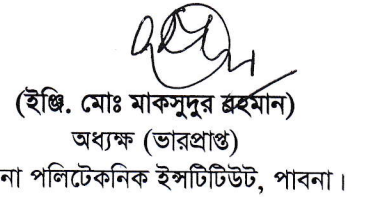 (ইঞ্জি. মোঃ মাকসুদুর রহমান)
অধ্যক্ষ (ভারপ্রাপ্ত)
না পলিটেকনিক ইন্সটিটিউট, পাবনা।